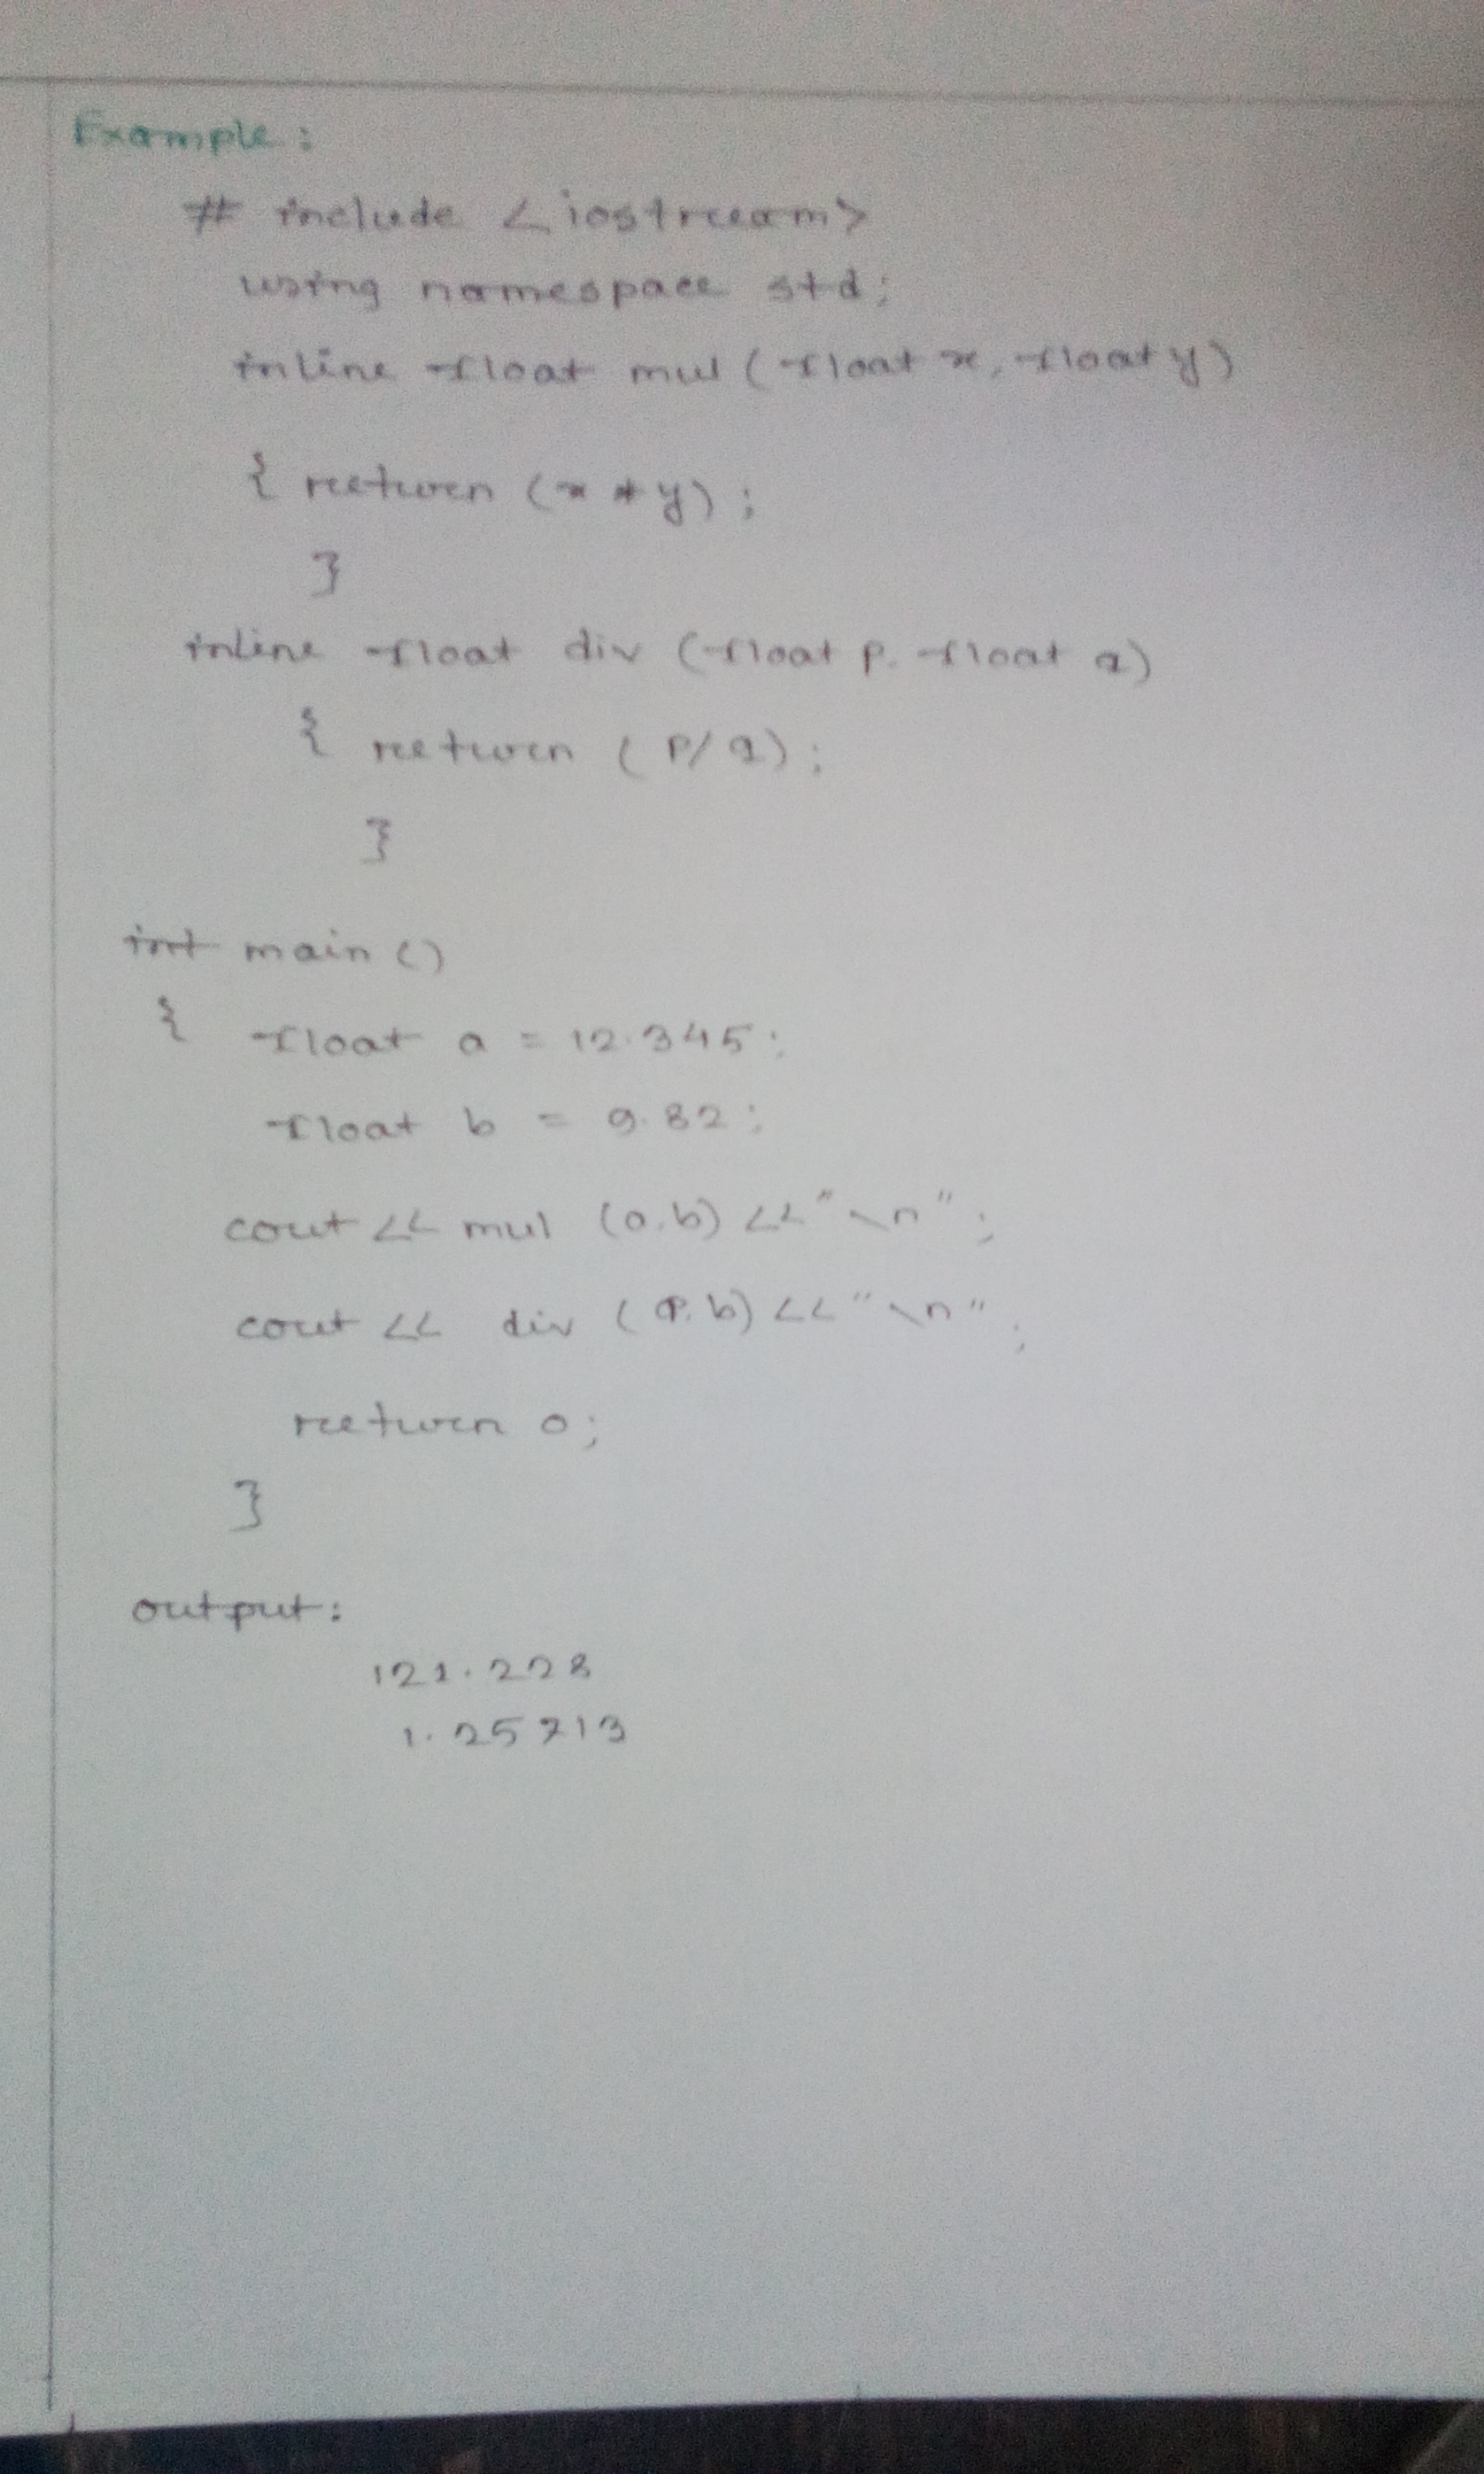 Example:
# include <iostream>
using namespace std;
inline float mul (float x, float y)
{ return (x * y);
}
inline float div (float p, float q)
{ return (p/q);
}
int main ()
{ float a = 12.345;
float b = 9.82;
cout << mul (a,b) << "\n";
cout << div (p,b) << "\n";
return 0;
}
output:
121.228
1.25713